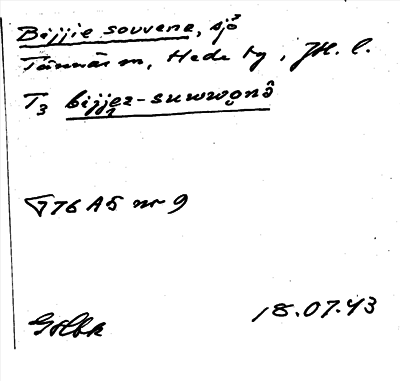 Bijjie souvene, sjö
Tännäs sn, Hede tg, JH. l.
T3 bijjez-suwwonâ
J76 A5 nr 9
18.07.43